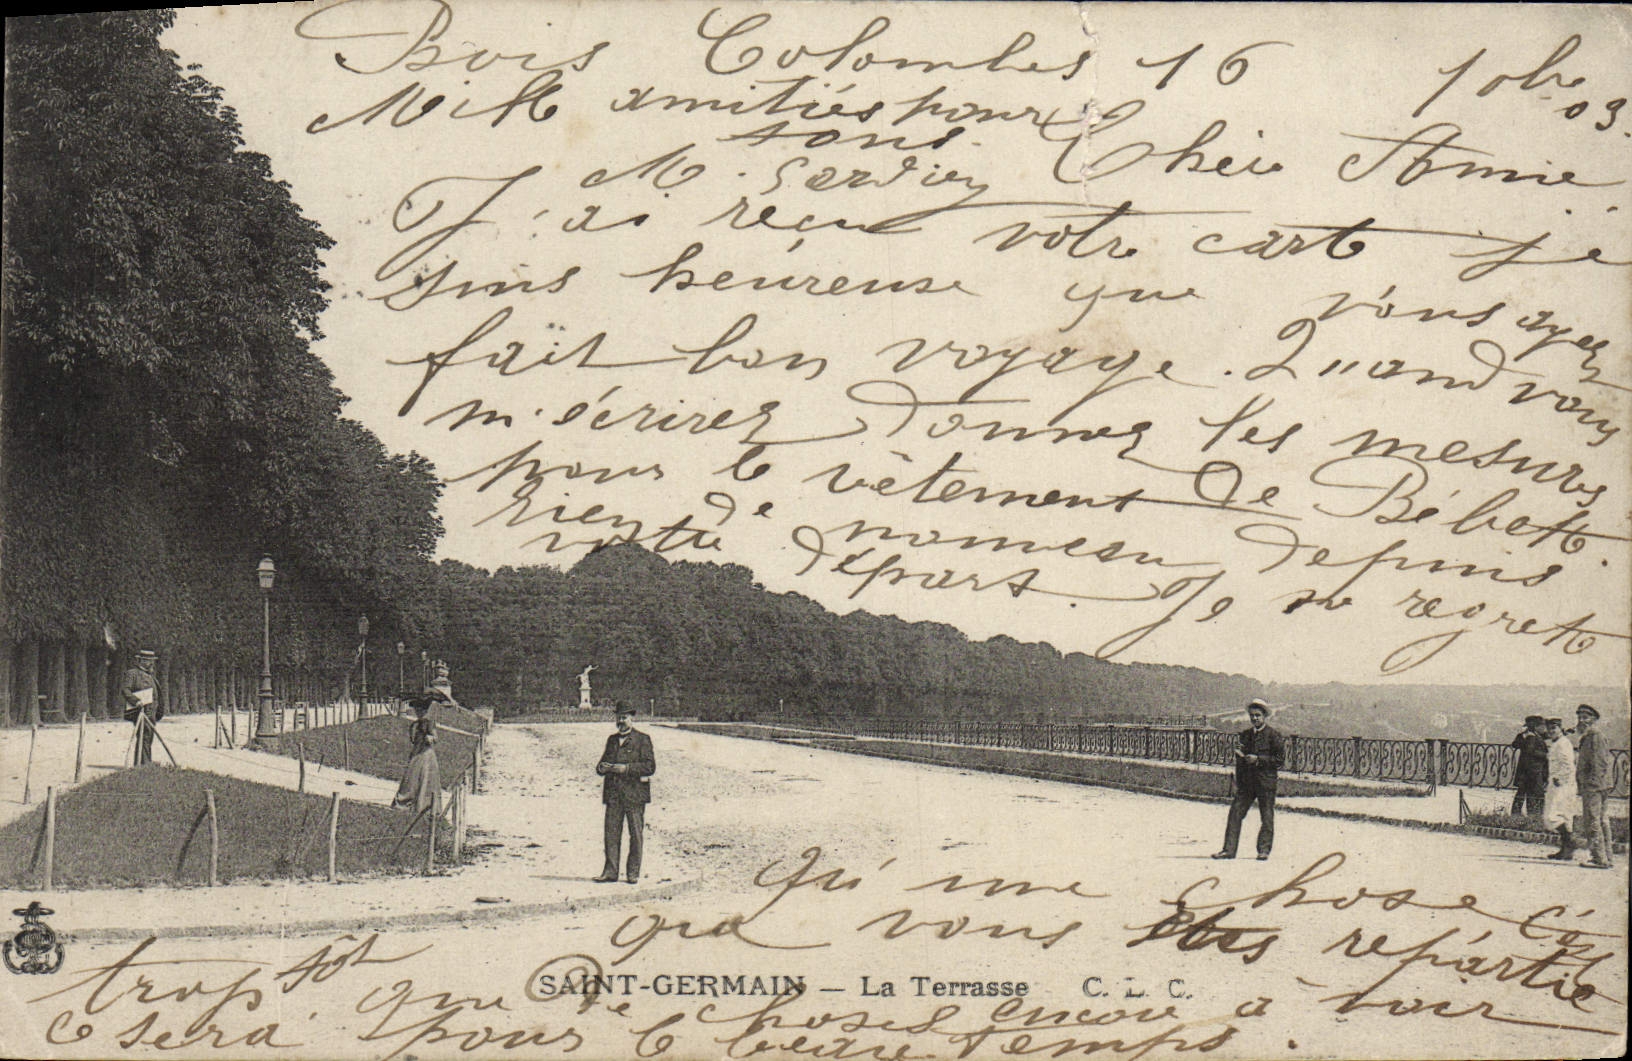 Bois Colombes 16 7obre 03.
Mille amitiés pour tous.
M. Gardiey
Chèie Amie
J'ai reçu votre carte je
suis heureuse que vous ayez
fait bon voyage. Quand vous
m'écrirez donnez les mesures
pour le vêtement de Bébette.
rien de nouveau depuis
votre départ. Je ne regrette
qu'une chose c'est
que vous êtes repartie
trop tôt que de choses encore à voir
ce sera pour le beau temps.
SAINT-GERMAIN — La Terrasse C. L. C.